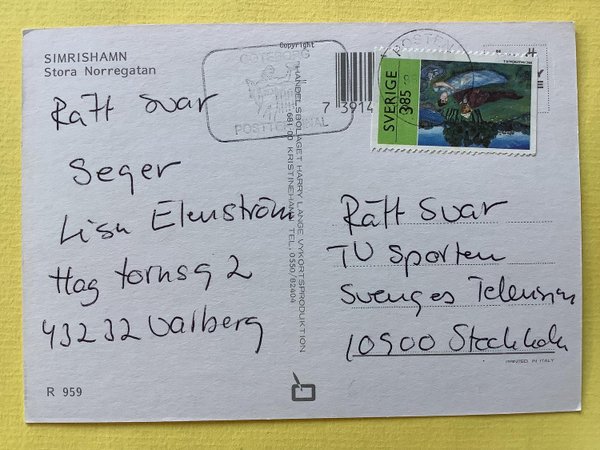 SIMRISHAMN
Stora Norregatan
Rätt svar
Seger
Lisa Elenström
Hag tornsg 2
43232 Varberg
R 959
Copyright
HANDELSBOLAGET HARRY LANGE VYKORTSPRODUKTION
681 00 KRISTINEHAMN TEL. 0550/82404
GÖTEBORG
POSTTERMINAL
POSTEN
7 3914
SVERIGE
385
Rätt Svar
TV Sporten
Sveriges Television
10500 Stockholm
PRINTED IN ITALY